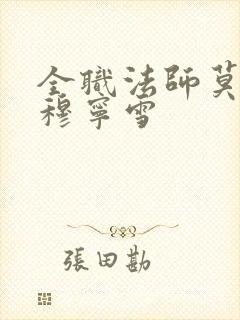 全職法師莫
穆寧雪
張田勘